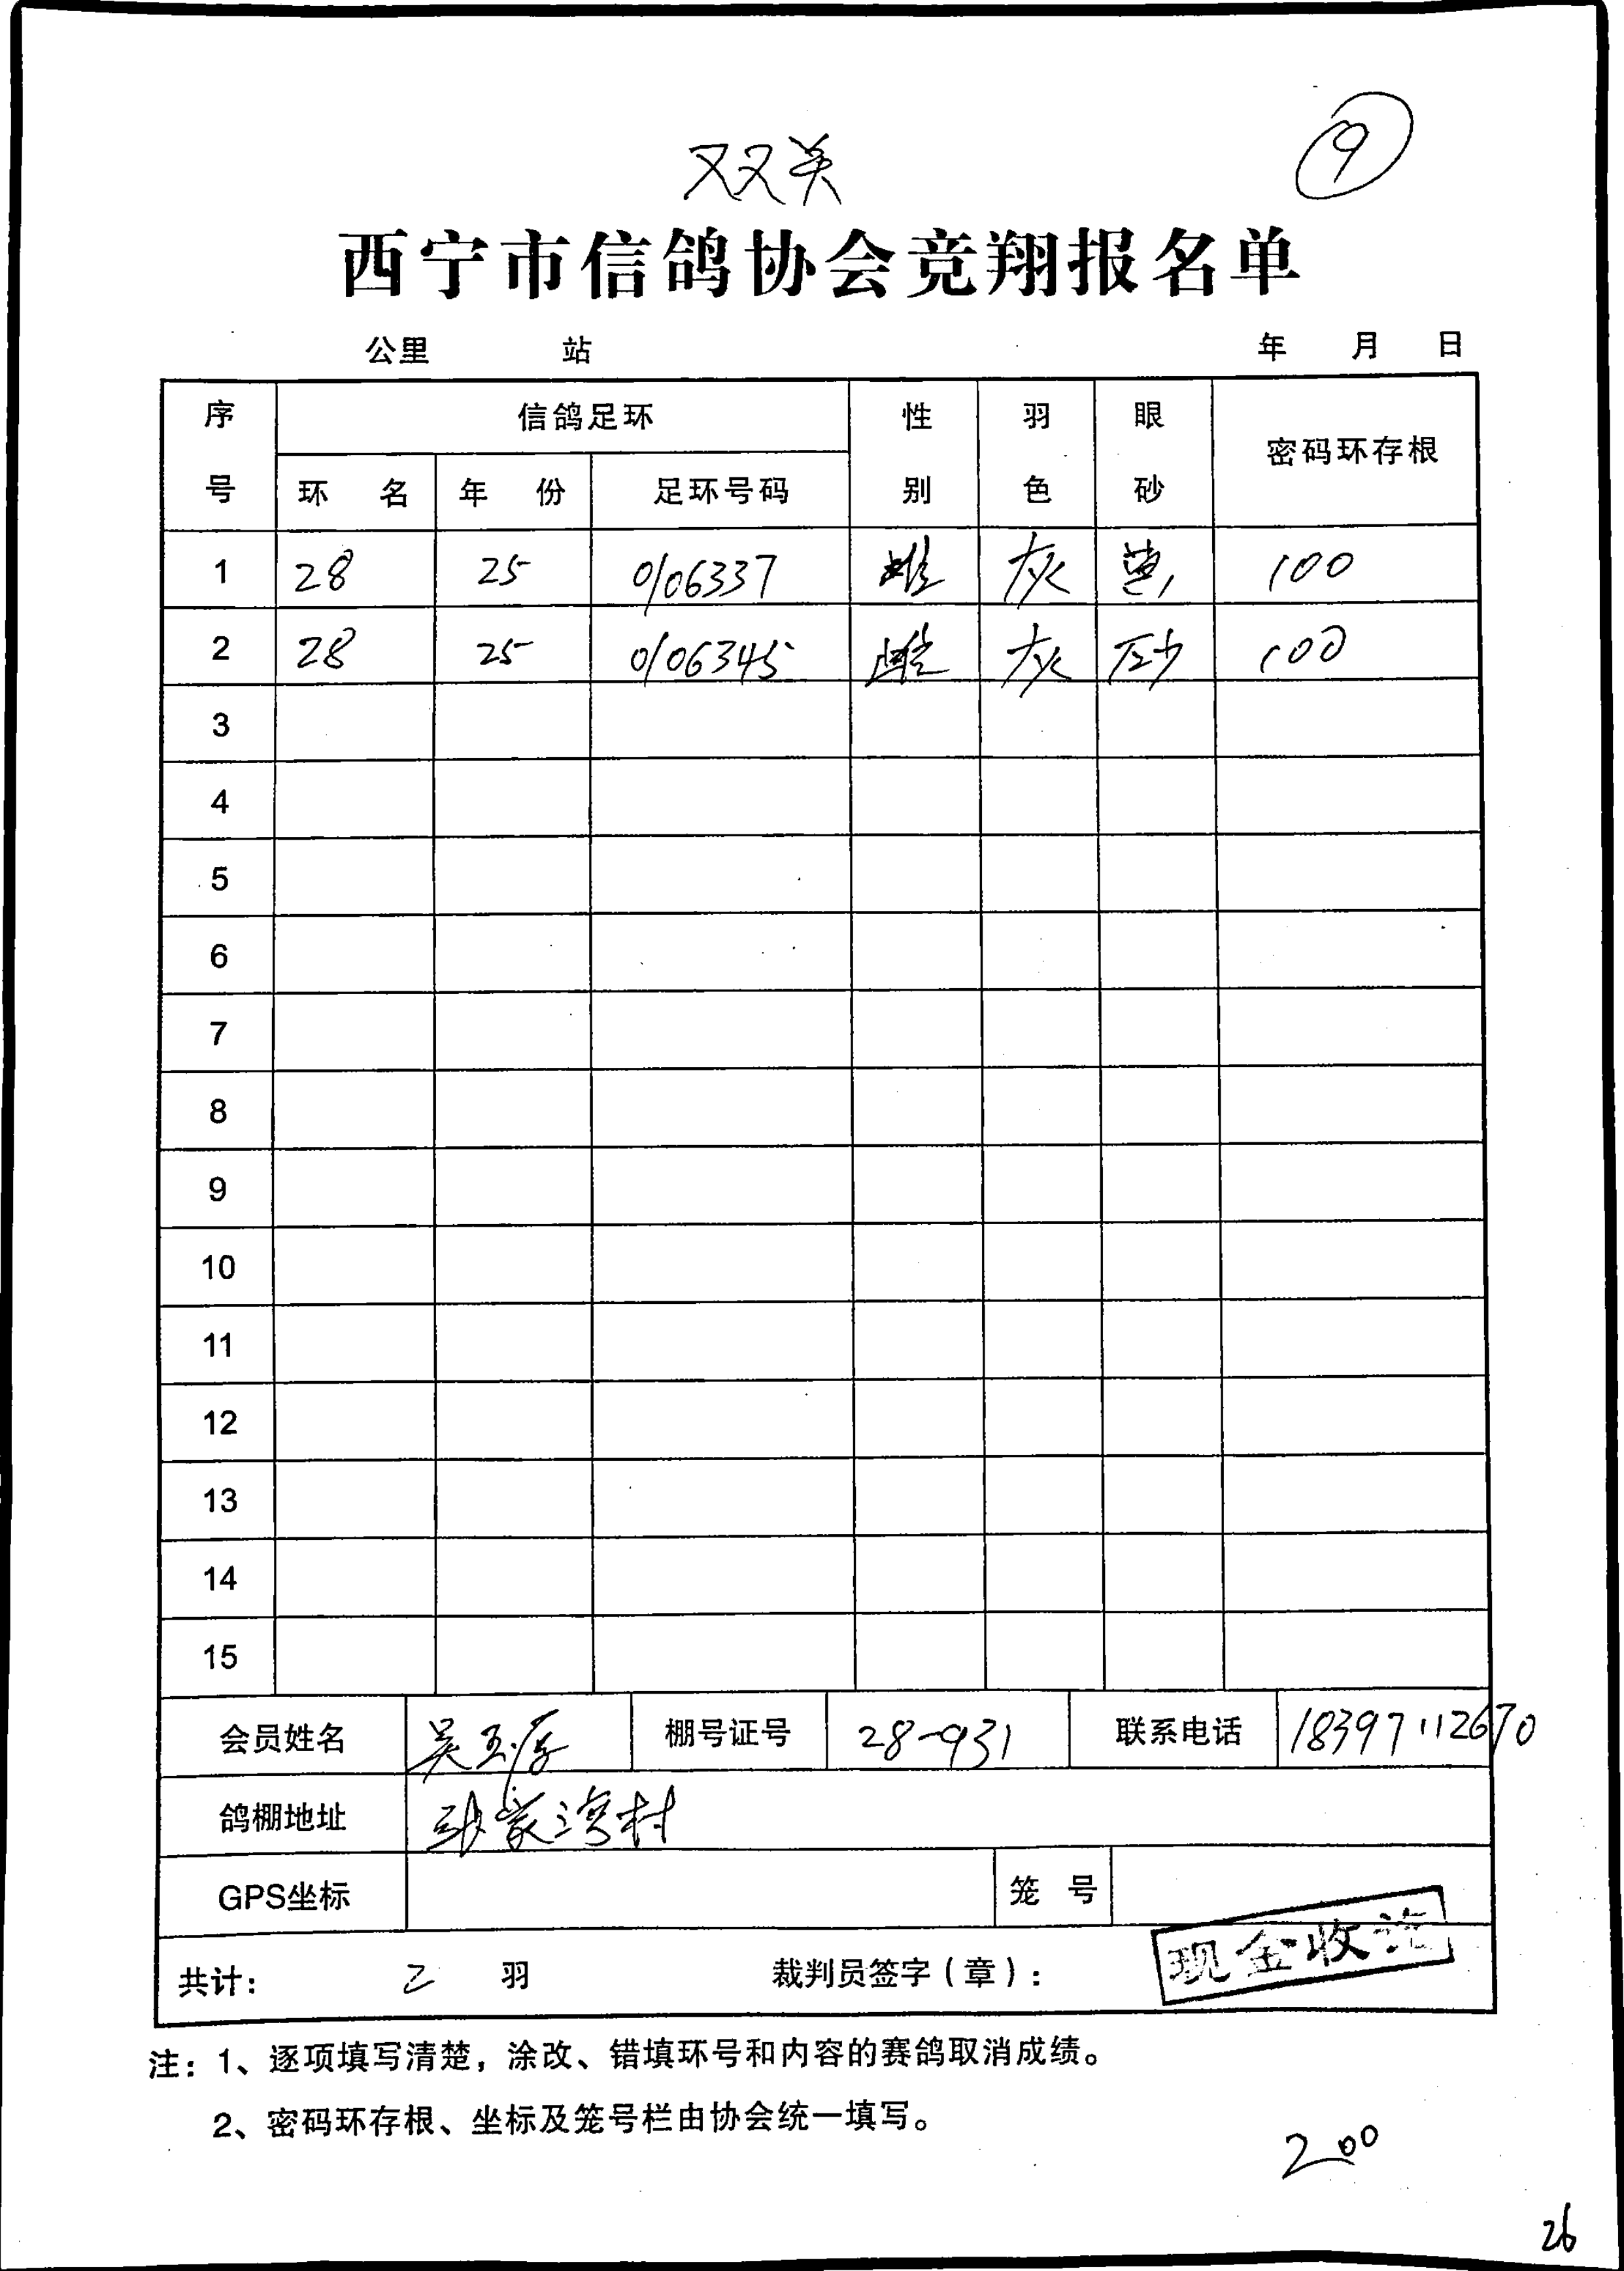 双关
9
西宁市信鸽协会竞翔报名单
公里 站 年 月 日
序号 信鸽足环 性别 羽色 眼砂 密码环存根
环名 年份 足环号码
1 28 25 0106337 雌 灰 黄 100
2 28 25 0106345 雌 灰 砂 100
3
4
5
6
7
8
9
10
11
12
13
14
15
会员姓名 吴玉 棚号证号 28-931 联系电话 18397112670
鸽棚地址 张家湾村
GPS坐标 笼号
共计: 2 羽 裁判员签字(章): 现金收讫
注:1、逐项填写清楚,涂改、错填环号和内容的赛鸽取消成绩。
2、密码环存根、坐标及笼号栏由协会统一填写。
200
26